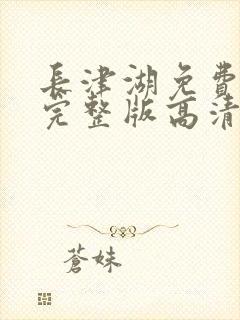 長津湖免費
完整版高清
蒼妹